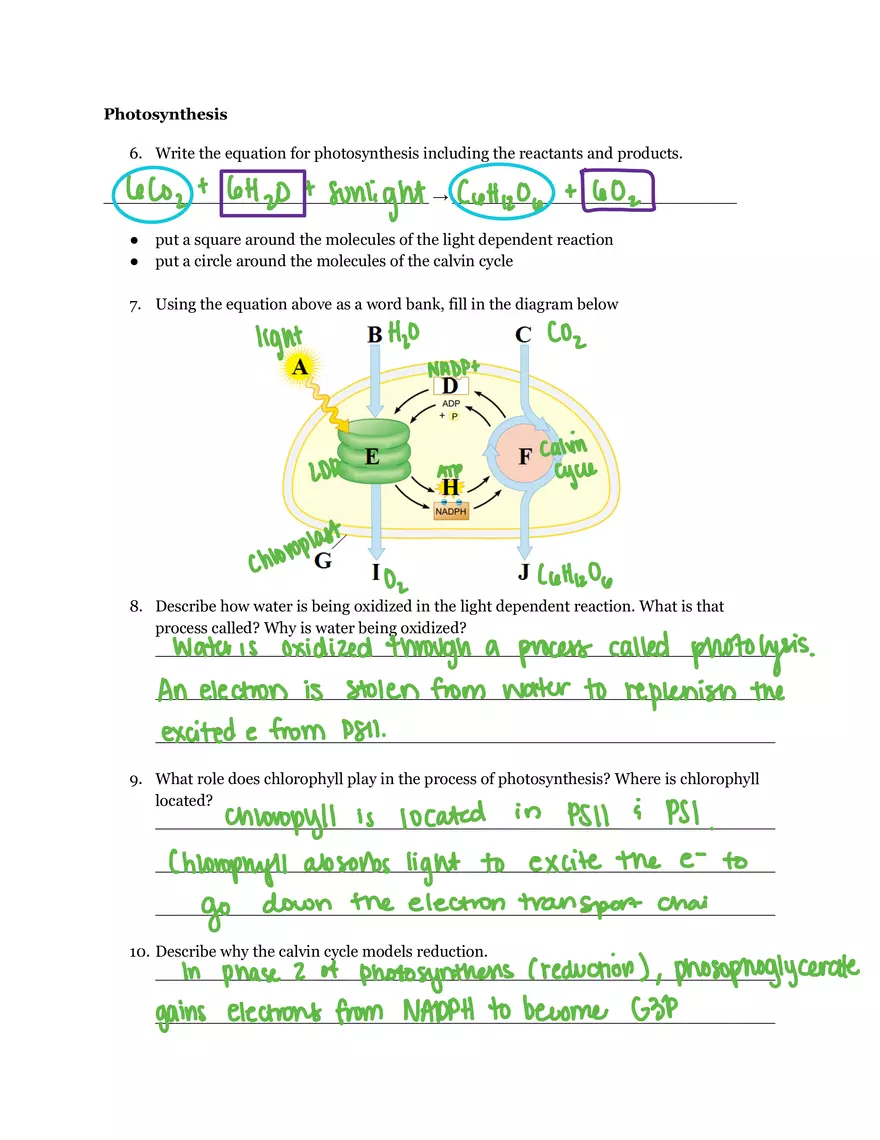 Photosynthesis
6. Write the equation for photosynthesis including the reactants and products.
6CO2 + 6H2O + sunlight → C6H12O6 + 6O2
● put a square around the molecules of the light dependent reaction
● put a circle around the molecules of the calvin cycle
7. Using the equation above as a word bank, fill in the diagram below
light B H2O C CO2
A NADP+
D
ADP
+ P
E LDR F Calvin
cycle
ATP
H
NADPH
chloroplast
G
I O2 J C6H12O6
8. Describe how water is being oxidized in the light dependent reaction. What is that
process called? Why is water being oxidized?
Water is oxidized through a process called photolysis.
An electron is stolen from water to replenish the
excited e from PSII.
9. What role does chlorophyll play in the process of photosynthesis? Where is chlorophyll
located?
Chloropyll is located in PSII & PSI.
Chlorophyll absorbs light to excite the e- to
go down the electron transport chai
10. Describe why the calvin cycle models reduction.
In phase 2 of photosynthens (reduction), phosophoglycerate
gains electrons from NADPH to become G3P